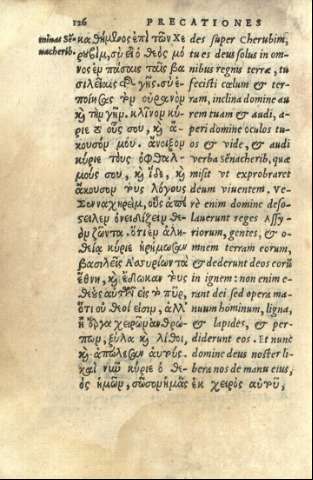 126 PRECATIONES
minas Sen-
nacherib.
καθήμενος ἐπὶ τῶν Χε
ρουβὶμ, σὺ εἶ ὁ θεὸς μό
νος ἐν πάσαις ταῖς βα
σιλείαις τῆς γῆς. σὺ ἐ-
ποίησας τὸν οὐρανὸν
καὶ τὴν γῆν. κλῖνον κύ
ριε τὸ οὖς σου, καὶ ἄ-
κουσόν μου. ἄνοιξον
κύριε τοὺς ὀφθαλ-
μούς σου, καὶ ἴδε, καὶ
ἄκουσον τοὺς λόγους
Σενναχηρεὶμ, οὓς ἀπέ
στειλεν ὀνειδίζειν θε-
ὸν ζῶντα. ὅτι ἐπ' ἀλη-
θείᾳ κύριε ἠρήμωσαν
βασιλεῖς Ἀσσυρίων τὰ
ἔθνη, καὶ ἔδωκαν τοὺς
θεοὺς αὐτῶν εἰς τὸ πῦρ,
ὅτι οὐ θεοί εἰσιν, ἀλλ'
ἢ ἔργα χειρῶν ἀνθρώ-
πων, ξύλα καὶ λίθοι,
καὶ ἀπώλεσαν αὐτούς.
καὶ νῦν κύριε ὁ θε-
ὸς ἡμῶν, σῶσον ἡμᾶς ἐκ χειρὸς αὐτοῦ,
des super Cherubim,
tu es deus solus in om-
nibus regnis terræ, tu
fecisti cœlum & ter-
ram, inclina domine au
rem tuam & audi, a-
peri domine oculos tu-
os & vide, & audi
verba Senacherib, quæ
misit vt exprobraret
deum viuentem, Ve-
rè enim domine deso-
lauerunt reges Assy-
riorum, gentes, & o-
mnem terram eorum,
& dederunt deos eorū
in ignem: non enim e-
rant dei sed opera ma-
nuum hominum, ligna,
& lapides, & per-
diderunt eos. Et nunc
domine deus noster li-
bera nos de manu eius,